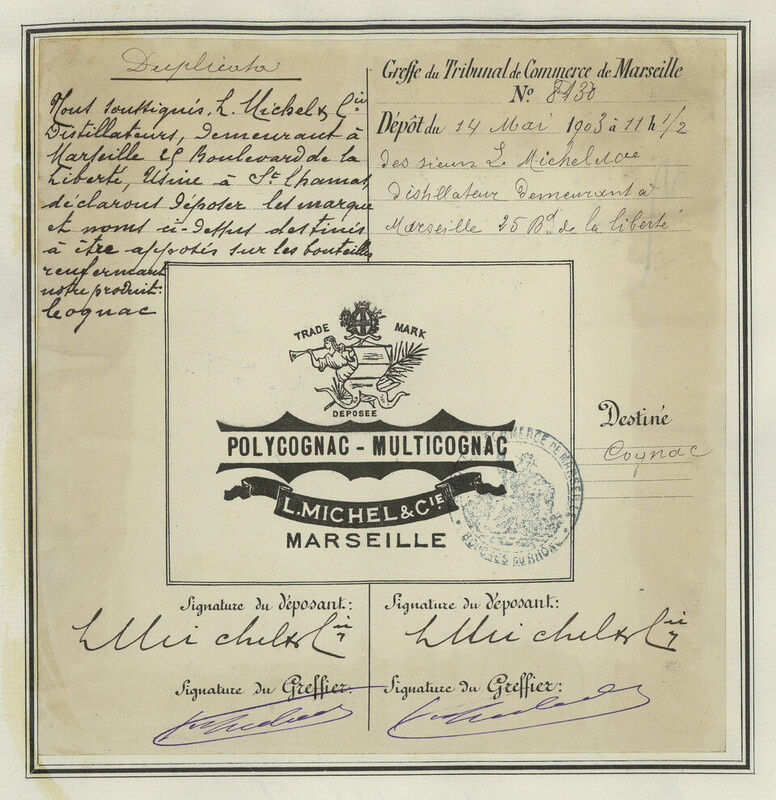 Duplicata
Nous soussignés, L. Michel & Cie
Distillateurs, demeurant à
Marseille 25 Boulevard de la
Liberté, Usine à St Chamas,
déclarons déposer les marque
et noms ci-dessus destinés
à être apposés sur les bouteilles
renfermant
notre produit:
le cognac
Greffe du Tribunal de Commerce de Marseille
No 8130
Dépôt du 14 Mai 1903 à 11 h 1/2
des sieurs L. Michel & Cie
distillateur demeurant à
Marseille 25 Bd de la liberté
TRADE MARK
DEPOSEE
POLYCOGNAC - MULTICOGNAC
L. MICHEL & CIE
MARSEILLE
Destiné
Cognac
COMMERCE DE MARSEILLE
BOUCHES DU RHÔNE
Signature du déposant:
L Michel & Cie
Signature du déposant:
L Michel & Cie
Signature du Greffier:
Signature du Greffier: